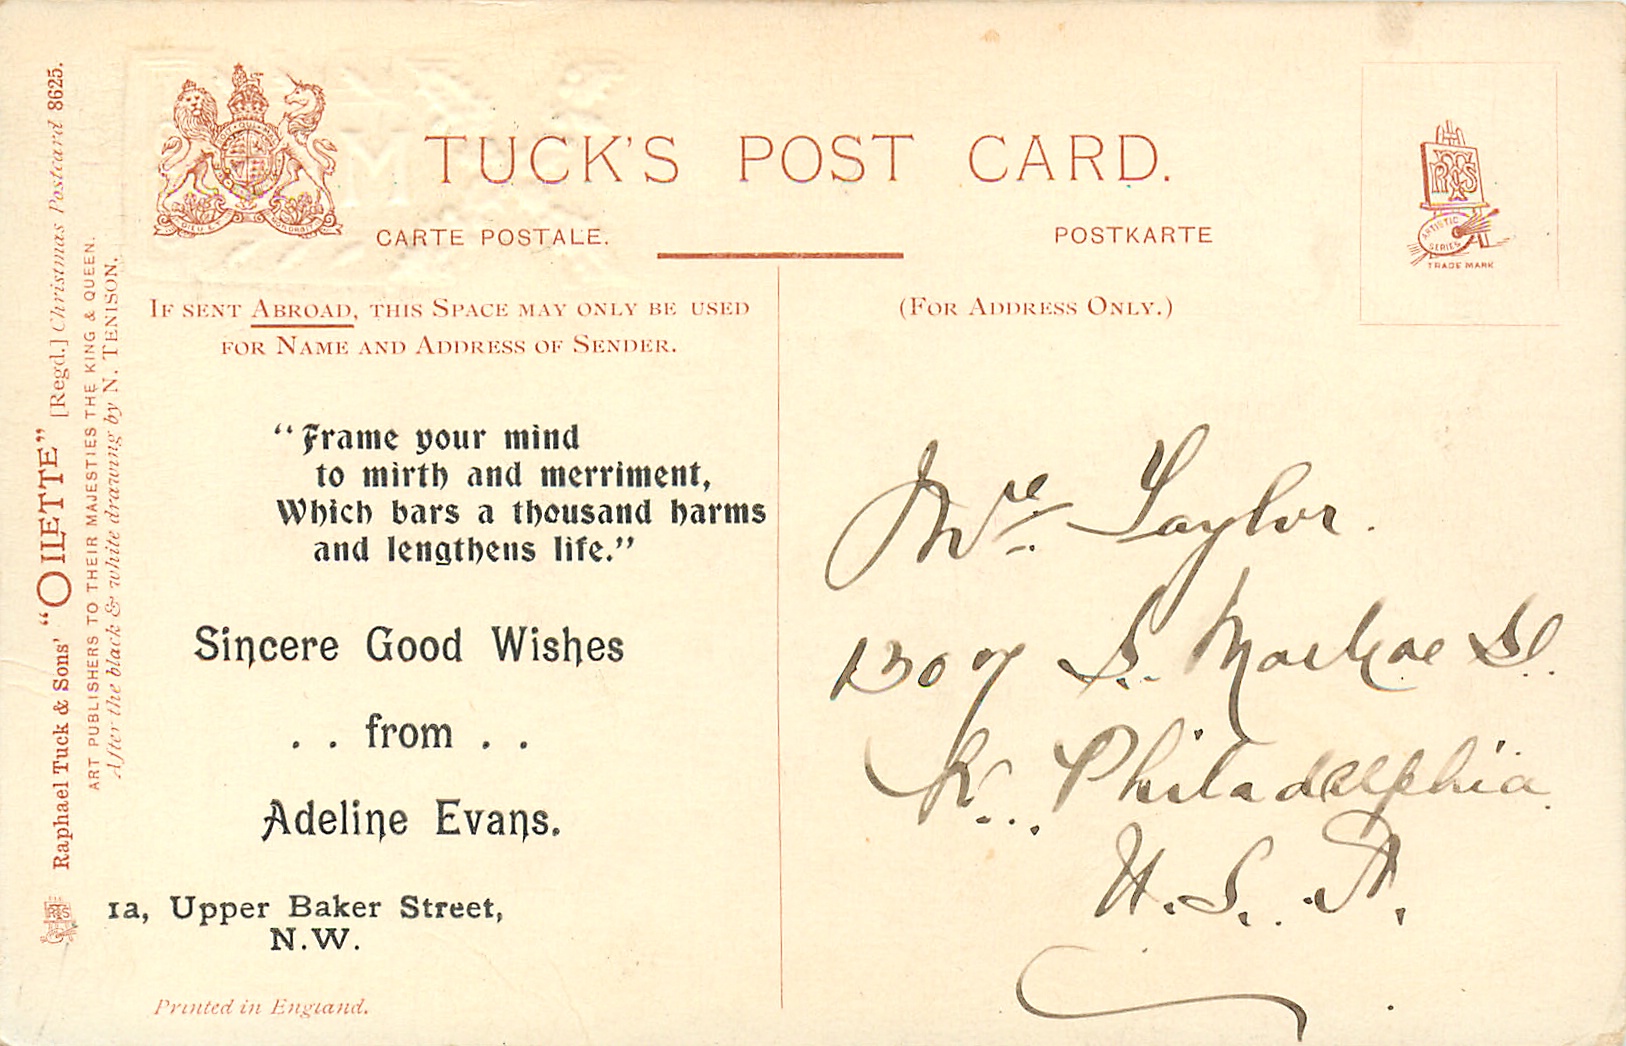 TUCK'S POST CARD.
CARTE POSTALE.
POSTKARTE
IF SENT ABROAD, THIS SPACE MAY ONLY BE USED
FOR NAME AND ADDRESS OF SENDER.
(FOR ADDRESS ONLY.)
ARTISTIC
SERIES
TRADE MARK
"Frame your mind
to mirth and merriment,
Which bars a thousand harms
and lengthens life."
Sincere Good Wishes
. . from . .
Adeline Evans.
1a, Upper Baker Street,
N.W.
Printed in England.
Raphael Tuck & Sons' "OILETTE" [Regd.] Christmas Postcard 8625.
ART PUBLISHERS TO THEIR MAJESTIES THE KING & QUEEN.
After the black & white drawing by N. TENISON.
Taylor.
1307 S. St.
Philadelphia
U.S.A.